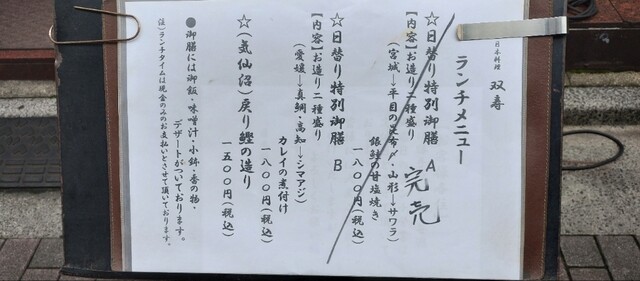 日本料理 双寿
ランチメニュー
☆日替り特別御膳 A 完売
【内容】お造り二種盛り
(宮城→平目の昆布〆・山形→サワラ)
銀鮭の甘塩焼き
一八〇〇円(税込)
☆日替り特別御膳 B
【内容】お造り二種盛り
(愛媛→真鯛・高知→シマアジ)
カレイの煮付け
一八〇〇円(税込)
☆(気仙沼)戻り鰹の造り
一五〇〇円(税込)
●御膳には御飯・味噌汁・小鉢・香の物・
デザートがついております。
注)ランチタイムは現金のみのお支払いとさせて頂いております。